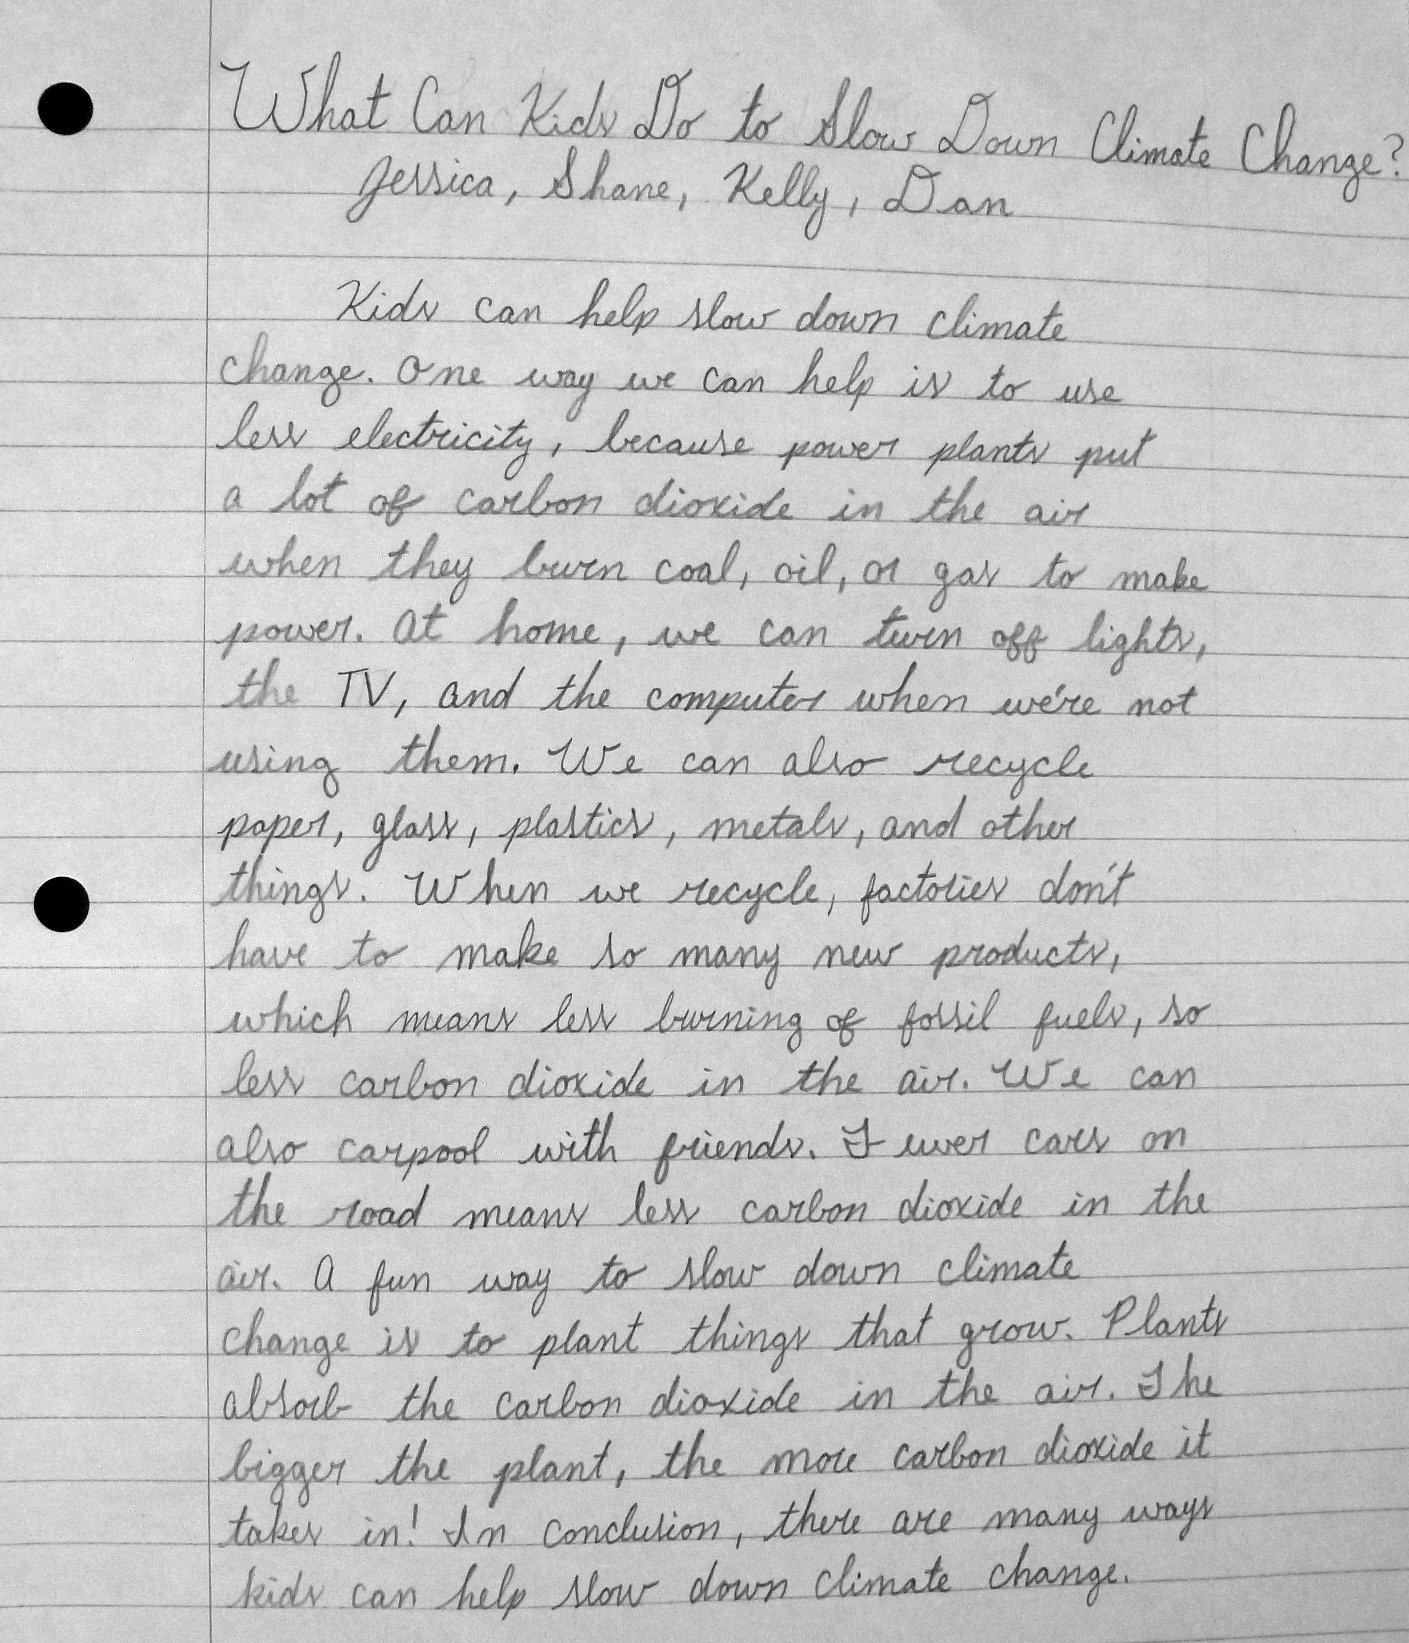 What Can Kids Do to Slow Down Climate Change?
Jessica, Shane, Kelly, Dan
Kids can help slow down climate
change. One way we can help is to use
less electricity, because power plants put
a lot of carbon dioxide in the air
when they burn coal, oil, or gas to make
power. At home, we can turn off lights,
the TV, and the computer when we're not
using them. We can also recycle
paper, glass, plastics, metals, and other
things. When we recycle, factories don't
have to make so many new products,
which means less burning of fossil fuels, so
less carbon dioxide in the air. We can
also carpool with friends. Fewer cars on
the road means less carbon dioxide in the
air. A fun way to slow down climate
change is to plant things that grow. Plants
absorb the carbon dioxide in the air. The
bigger the plant, the more carbon dioxide it
takes in! In conclusion, there are many ways
kids can help slow down climate change.